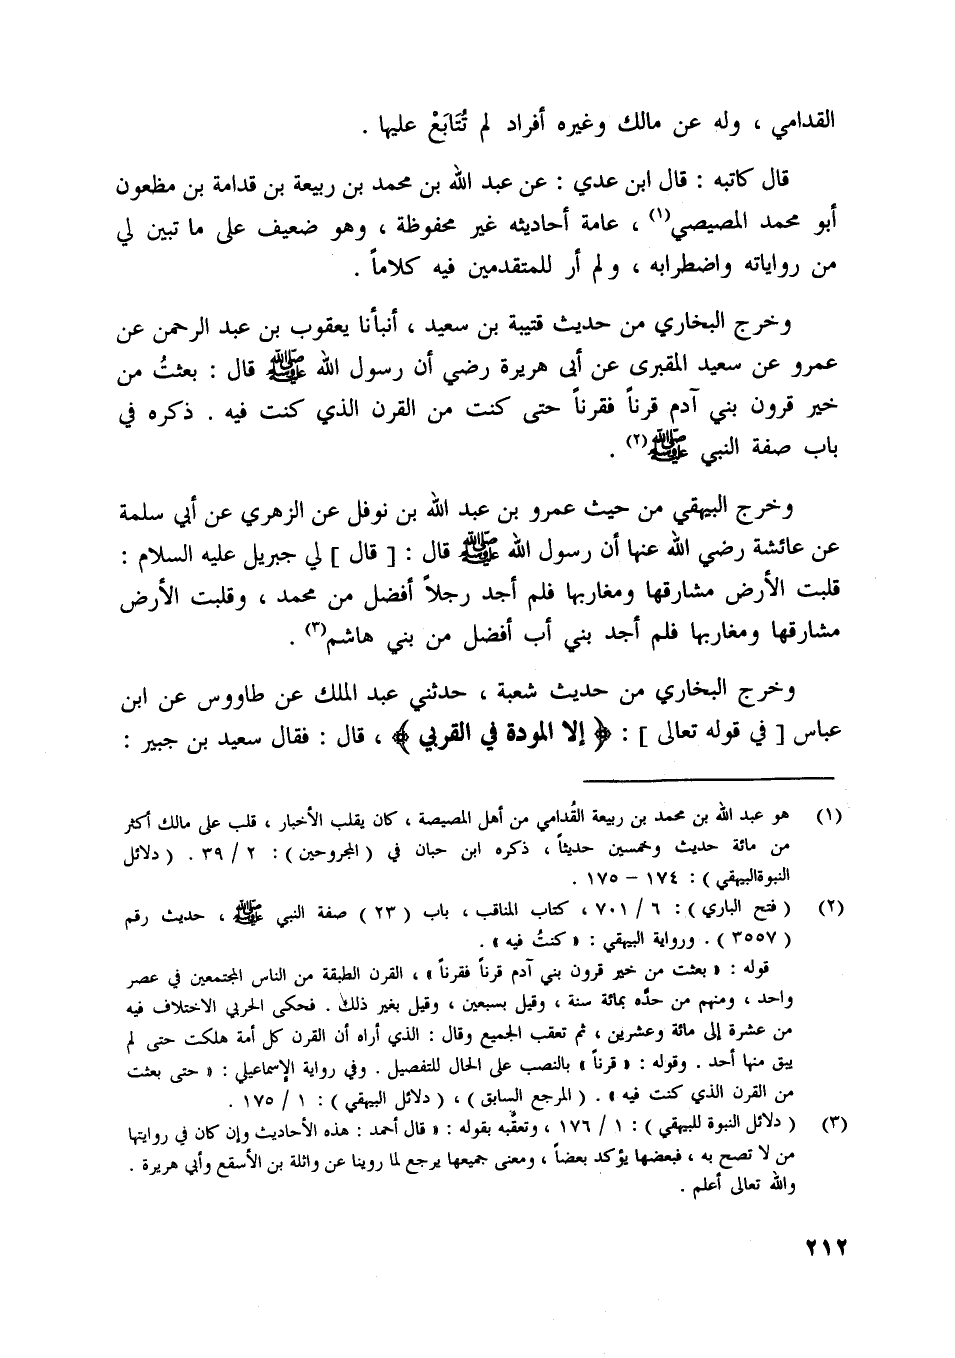 القدامي ، وله عن مالك وغيره أفراد لم تُتَابَعْ عليها .
قال كاتبه : قال ابن عدي : عن عبد الله بن محمد بن ربيعة بن قدامة بن مظعون
أبو محمد المصيصي(١) ، عامة أحاديثه غير محفوظة ، وهو ضعيف على ما تبين لي
من رواياته واضطرابه ، ولم أر للمتقدمين فيه كلاماً .
وخرج البخاري من حديث قتيبة بن سعيد ، أنبأنا يعقوب بن عبد الرحمن عن
عمرو عن سعيد المقبرى عن أبى هريرة رضي أن رسول الله ﷺ قال : بعثتُ من
خير قرون بني آدم قرناً فقرناً حتى كنت من القرن الذي كنت فيه . ذكره في
باب صفة النبي ﷺ(٢) .
وخرج البيهقي من حيث عمرو بن عبد الله بن نوفل عن الزهري عن أبي سلمة
عن عائشة رضي الله عنها أن رسول الله ﷺ قال : [ قال ] لي جبريل عليه السلام :
قلبت الأرض مشارقها ومغاربها فلم أجد رجلاً أفضل من محمد ، وقلبت الأرض
مشارقها ومغاربها فلم أجد بني أب أفضل من بني هاشم(٣) .
وخرج البخاري من حديث شعبة ، حدثني عبد الملك عن طاووس عن ابن
عباس [ في قوله تعالى ] : ﴿ إلا المودة في القربي ﴾ ، قال : فقال سعيد بن جبير :
(١) هو عبد الله بن محمد بن ربيعة القُدامي من أهل المصيصة ، كان يقلب الأخبار ، قلب على مالك أكثر
من مائة حديث وخمسين حديثاً ، ذكره ابن حبان في ( المجروحين ) : ٢ / ٣٩ . ( دلائل
النبوةالبيهقي ) : ١٧٤ – ١٧٥ .
(٢) ( فتح الباري ) : ٦ / ٧٠١ ، كتاب المناقب ، باب ( ٢٣ ) صفة النبي ﷺ ، حديث رقم
( ٣٥٥٧ ) . ورواية البيهقي : « كنتُ فيه » .
قوله : « بعثت من خير قرون بني آدم قرناً فقرناً » ، القرن الطبقة من الناس المجتمعين في عصر
واحد ، ومنهم من حدَّه بمائة سنة ، وقيل بسبعين ، وقيل بغير ذلك . فحكى الحربي الاختلاف فيه
من عشرة إلى مائة وعشرين ، ثم تعقب الجميع وقال : الذي أراه أن القرن كل أمة هلكت حتى لم
يبق منها أحد . وقوله : « قرناً » بالنصب على الحال للتفصيل . وفي رواية الإسماعيلي : « حتى بعثت
من القرن الذي كنت فيه » . ( المرجع السابق ) ، ( دلائل البيهقي ) : ١ / ١٧٥ .
(٣) ( دلائل النبوة للبيهقي ) : ١ / ١٧٦ ، وتعقَّبه بقوله : « قال أحمد : هذه الأحاديث وإن كان في روايتها
من لا تصح به ، فبعضها يؤكد بعضاً ، ومعنى جميعها يرجع لما روينا عن واثلة بن الأسقع وأبي هريرة .
والله تعالى أعلم .
٢١٢